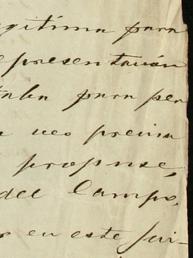 egítima para
epresentación
taba para per
a uco precisa
propuse,
del Campo,
r en este jui-